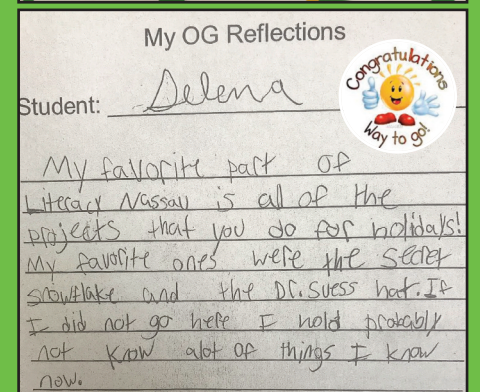 My OG Reflections
Congratulations
Way to go!
Student: Selena
My favorite part of
Literacy Nassau is all of the
projects that you do for holidays!
My favorite ones were the secret
snowflake and the Dr. Suess hat. If
I did not go here I hold probably
not know alot of things I know
now.